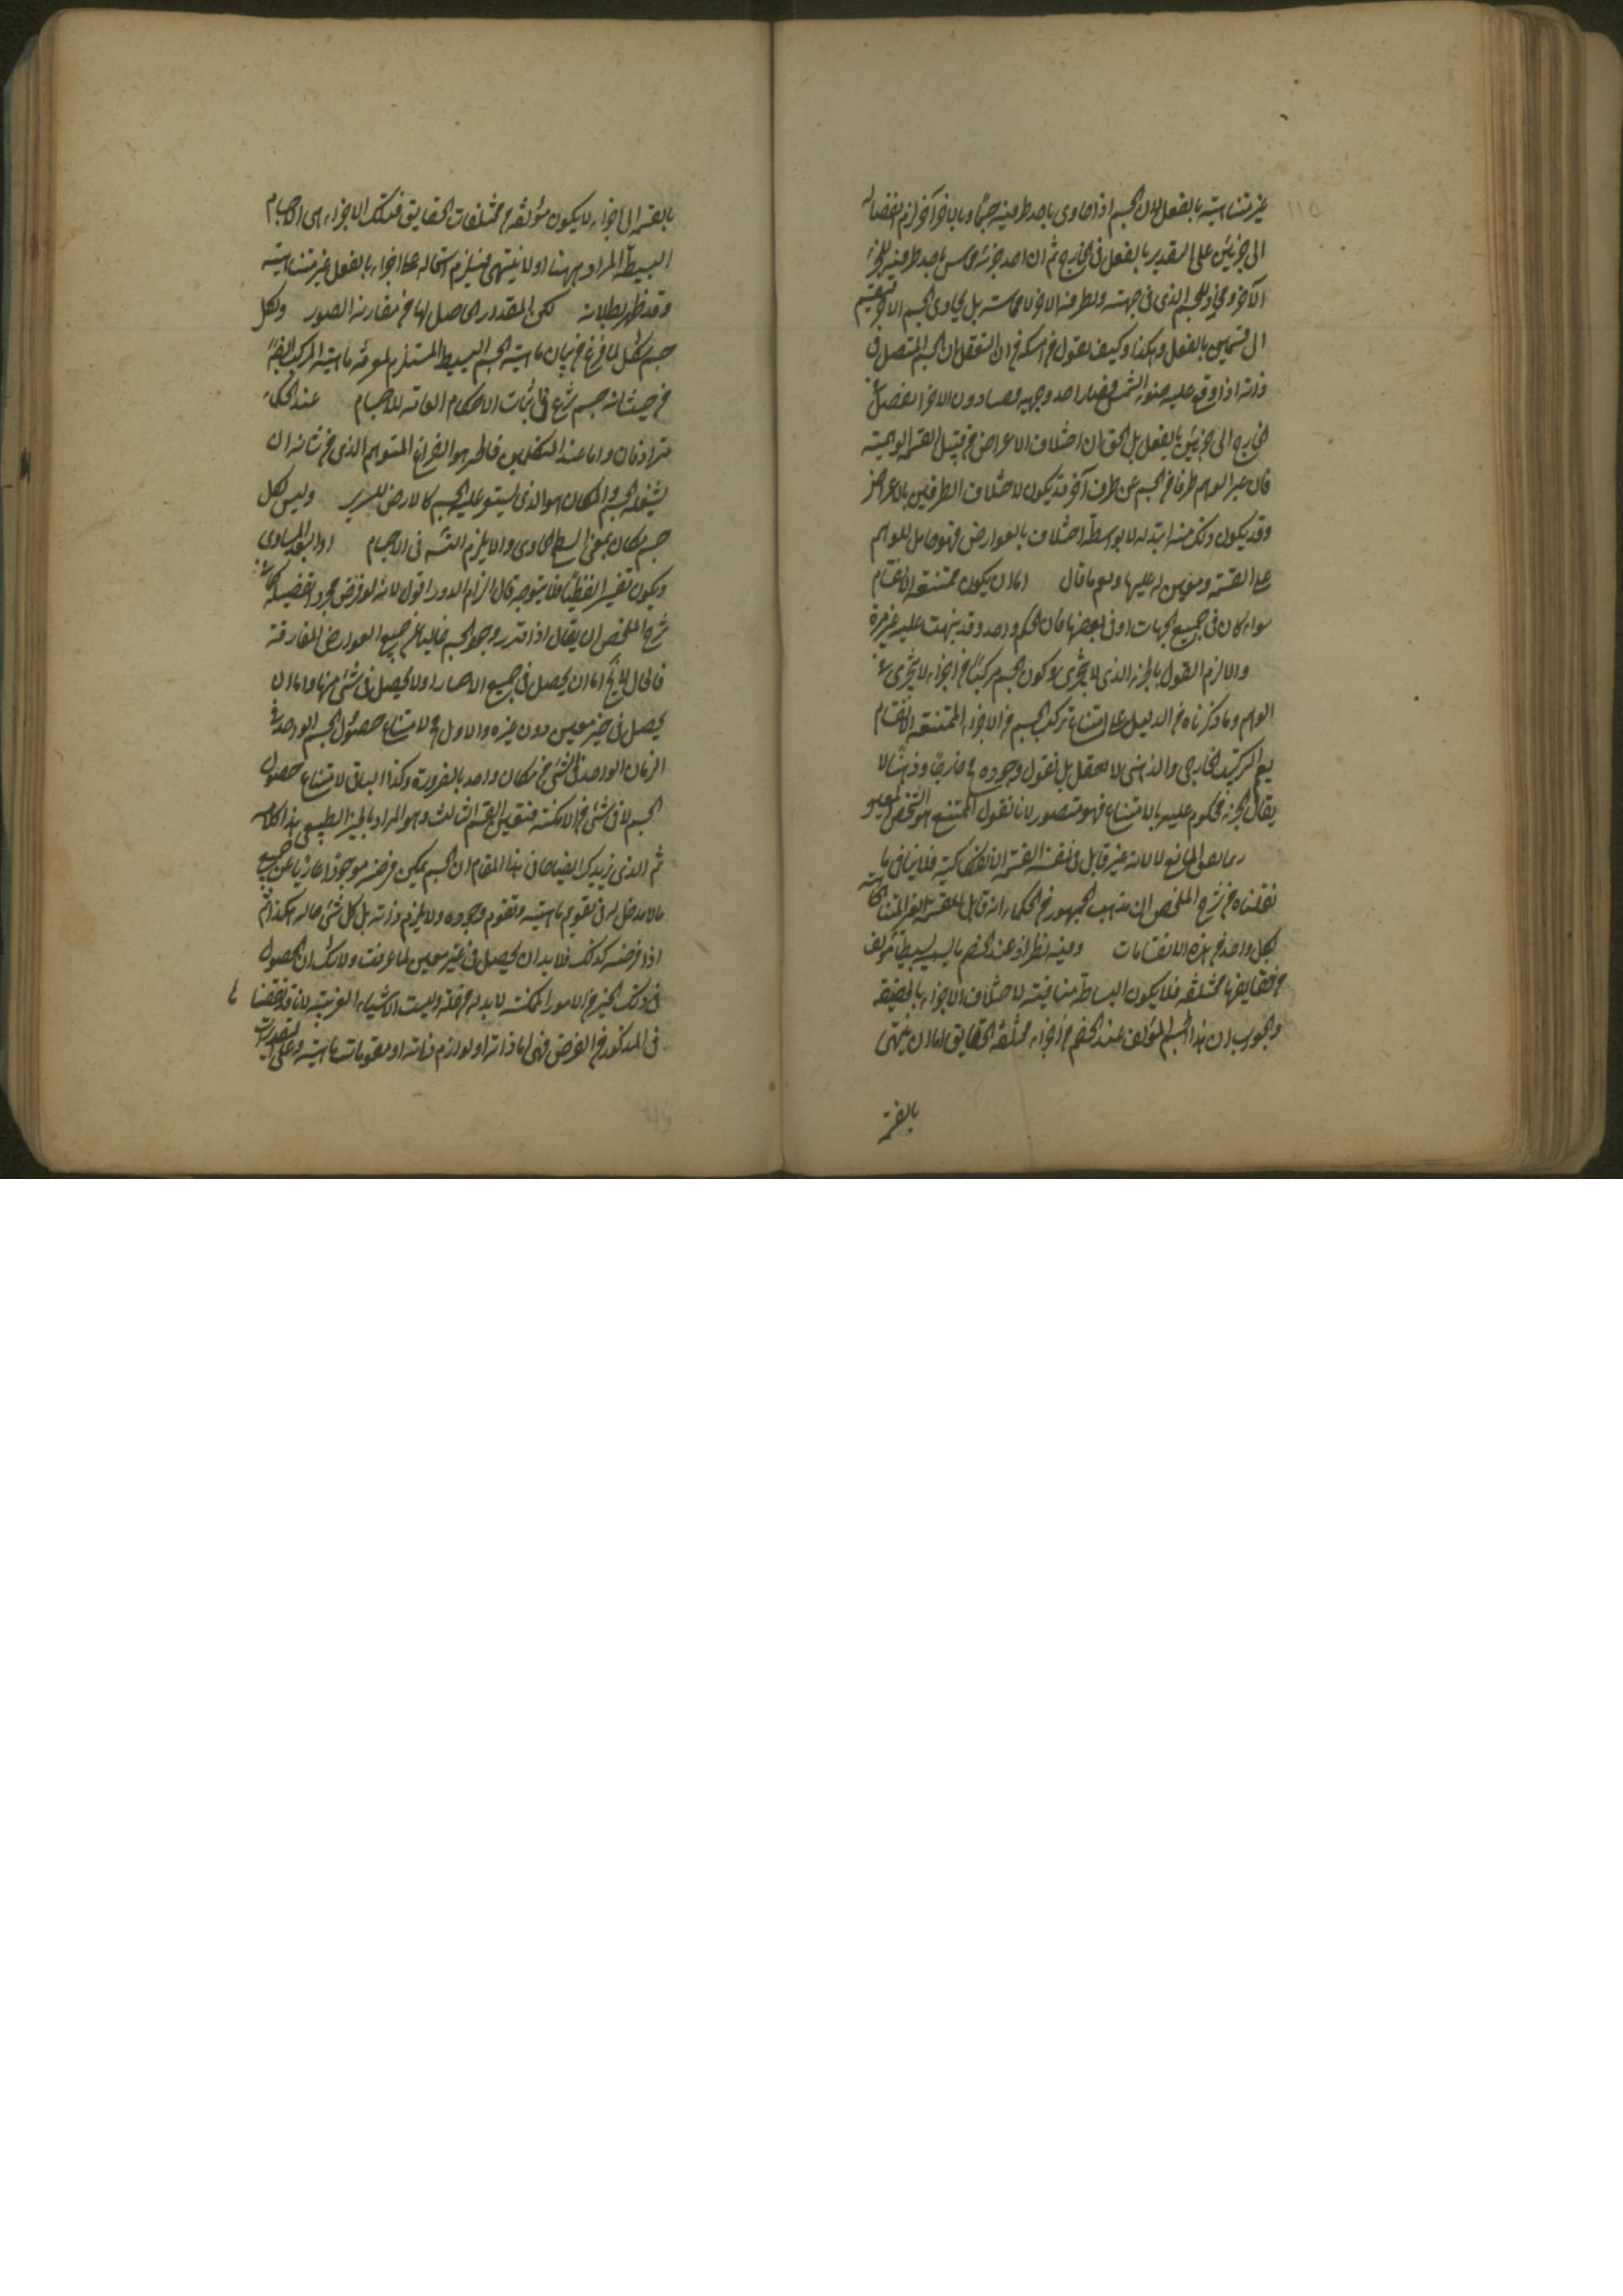 غير متناهية بالفعل لان الجسم اذا حاوى باحد طرفيه جسما وبالاخر آخر لزم انفصاله
الى جزئين على التقدير بالفعل فى الخارج ثم ان احد جزئيه مماس باحد طرفيه للجزء
الآخر ومحاذ للجسم الذى فى جهته وبطرفه الاخر لا مماسة بل يحاوى الجسم الاخر فينقسم
الى قسمين بالفعل وهكذا وكيف يقول من له ان التعقل ان الجسم المتصل فى
ذاته اذا وقع عليه ضوء الشمس فصار احد وجهيه مضيئا دون الاخر انفصل فى
الخارج الى جزئين بالفعل بل الحق ان اختلاف الاعراض من قبيل القسمة الوهمية
فان عبر الوهم طرفا من الجسم عن طرف آخر قد يكون لاختلاف الطرفين بالاعراض
وقد يكون ذلك منه ابتداء لا بواسطة اختلاف بالعوارض فهو حامل للوهم
على القسمة ومعين له عليها ونعم ما قال اما ان يكون ممتنعة الانقسام
سواء كان فى جميع الجهات او فى بعضها فان الحكم واحد وقد نبهت عليه غير مرة
والا لزم القول بالجزء الذى لا يتجزى وكون الجسم مركبا من اجزاء لا يتجزى فى
الوهم وما ذكرناه من الدليل على امتناع تركب الجسم من الاجزاء الممتنعة الانقسام
يعم التركيب الخارجى والذهنى لا يعقل بل نقول وجوده خارجا وذهنا لا
يقال الجزء محكوم عليه بالامتناع فهو متصور لانا نقول الممتنع هو الشخص
ربما يعوق المانع لا لانه غير قابل فى نفسه القسمة الانفكاكية فلا ينافى ما
نقلناه من شرح الملخص ان مذهب الجمهور من الحكماء انه قابل للقسمة الغير المتناهية
لكل واحد من هذه الانقسامات وفيه نظر لانه عند الخصم ليس ببسيط مؤلف
من حقايقها مختلفة فلا يكون البساطة منافية لاختلاف الاجزاء بالحقيقة
والجواب ان هذا الجسم المؤلف عند الخصم من اجزاء مختلفة الحقايق اما ان ينتهى
بالقسمة
بالقسمة الى اجزاء لا يكون مؤلفة من مختلفات الحقايق فتلك الاجزاء هى الاجسام
البسيطة المراد بهنا او لا ينتهى فيلزم اشتماله على اجزاء بالفعل غير متناهية
وقد ظهر بطلانه لكن المقدور الحاصل لها من مقارنة الصور ولكل
جسم شكل لما فرغ من بيان ماهية الجسم البسيط المستلزم لمعرفة ماهية المركب ايضا
من حيث انه جسم شرع فى اثبات الاحكام العامة للاجسام عند الحكماء
مترادفان واما عند المتكلمين فالحيز هو الفراغ المتوهم الذى من شانه ان
يشغله الجسم والمكان هو الذى يستقر عليه الجسم كالارض للسرير وليس لكل
جسم مكان بمعنى السطح الحاوى والا يلزم التسلسل فى الاجسام او البعد المساوى
ويكون تفسيرا لفظيا فلا يتوجه قال الزام الدور اقول لانه لو فرض مجرد
شرح الملخص ان يقال اذا قدر وجود الجسم خاليا عن جميع العوارض المفارقة
فالحال لا يخ اما ان يحصل فى جميع الاحياز او لا يحصل فى شئ منها واما ان
يحصل فى حيز معين دون غيره والاول مح لامتناع حصول الجسم الواحد فى
الزمان الواحد فى اكثر من مكان واحد بالضرورة وكذا الثانى لامتناع حصول
الجسم لا فى شئ من الامكنة فتعين القسم الثالث وهو المراد بالحيز الطبيعى هذا كلامه
ثم الذى يزيدك ايضاحا فى هذا المقام ان الجسم يمكن فرضه موجودا عاريا عن جميع
ما لا مدخل له فى تقويم ماهيته وتقوم وجوده ولا يلزم ذاته بل كل شئ حاله هكذا ثم
اذا فرض كذلك فلا بد ان يحصل فى حيز معين لما عرفت ولا شك ان الحصول
فى ذلك الحيز من الامور الممكنة لا بد له من علة وليست الاشياء الغريبة لانا قد
فى المذكور من الفرض فهى اما ذاته او لوازم ذاته او مقومات ماهيته وعلى